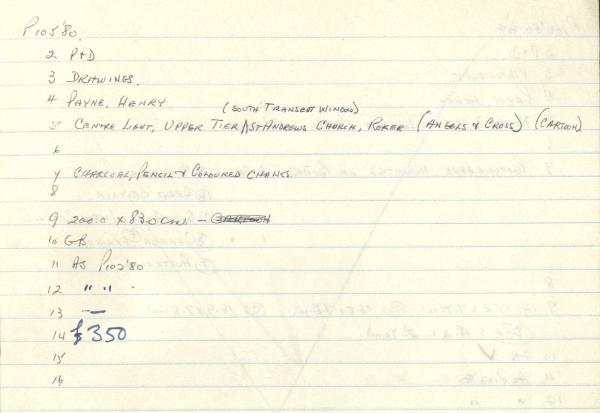 P105'80.
2 P+D
3 DRAWINGS.
4 PAYNE, HENRY
(SOUTH TRANSEPT WINDOW)
5 CENTRE LIGHT, UPPER TIER ST ANDREWS CHURCH, ROKER (ANGELS & CROSS) (CARTOON)
6
7 CHARCOAL, PENCIL & COLOURED CHALKS.
8
9 200.0 x 83.0 cm. -
10 GB.
11 AS P102'80
12 " " .
13 —
14 £350
15
16